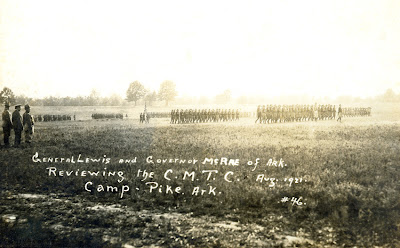 General Lewis and Governor McRae of Ark.
Reviewing the C.M.T.C. Aug. 1921.
Camp-Pike. Ark.
#46.